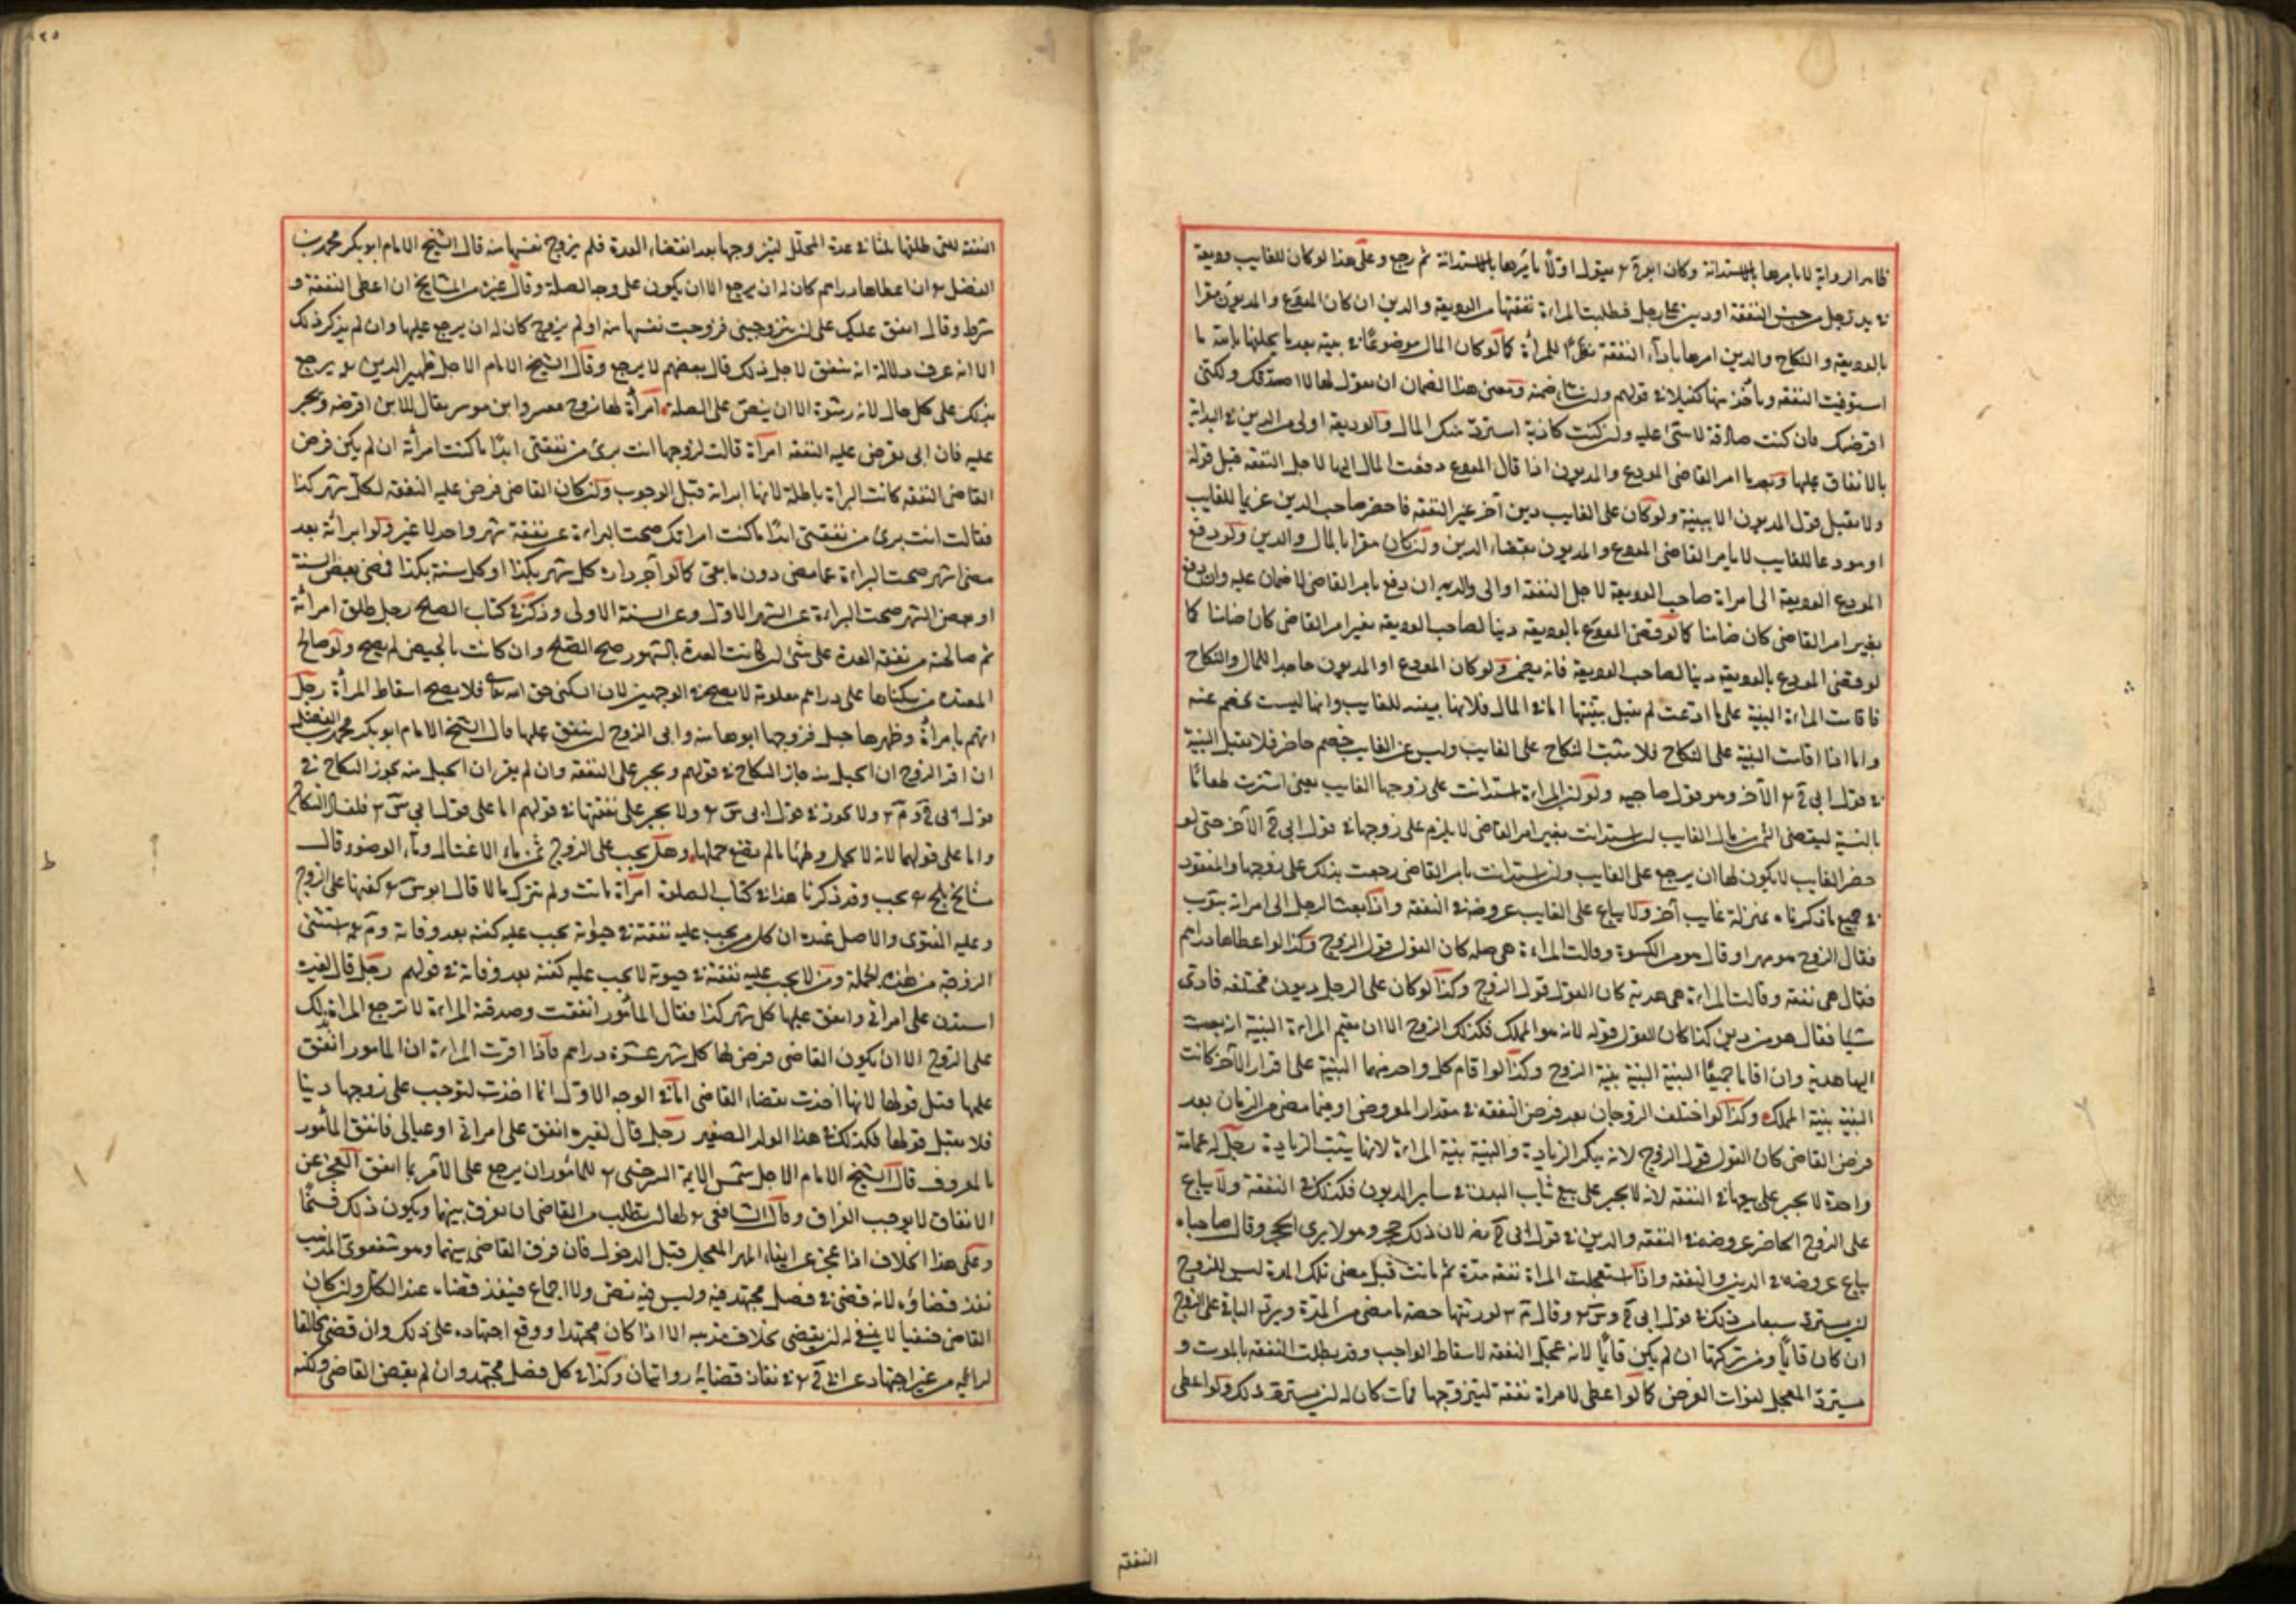 ظاهر الرواية لا يامرها بالاستدانة وكان ابو ح يقول اولا يامرها بالاستدانة ثم رجع وعلى هذا لو كان للغايب وديعة
في يد رجل من جنس النفقة او دين على رجل فطلبت المراة نفقتها من الوديعة والدين ان كان المودع والمديون مقرا
بالوديعة والنكاح والدين امرها باداء النفقة نظرا للمراة كما لو كان المال موضوعا في بيته بعد ما يحلفها بالله ما
استوفيت النفقه وياخذ منها كفيلا في قولهم وان شاء ضمنه ومعنى هذا الضمان ان يقول لها لا اصدقك ولكني
اقرضك فان كنت صادقة لا شئ عليه وان كنت كاذبة استرد منك المال والوديعة اولى من الدين في البداية
بالانفاق عليها وبعد ما امر القاضي المودع والمديون اذا قال المودع دفعت المال اليها لاجل النفقه قبل قوله
ولا يقبل قول المديون الا ببينة ولو كان على الغايب دين آخر غير النفقه فاحضر صاحب الدين غريما للغايب
او مودعا للغايب لا يامر القاضي المودع والمديون بقضاء الدين وان كان مقرا بالمال والدين ولو دفع
المودع الوديعة الى امراة صاحب الوديعة لاجل النفقة او الى والديه ان دفع بامر القاضي لا ضمان عليه وان دفع
بغير امر القاضي كان ضامنا كما لو قضى المودع بالوديعة دينا لصاحب الوديعه بغير امر القاضي كان ضامنا كما
لو قضى المودع بالوديعة دينا لصاحب الوديعة فانه يضمن ولو كان المودع او المديون جاحدا للمال والنكاح
فاقامت المراة البينة على ما ادعت لم يقبل بينتها اما في المال فلانها بينة للغايب وانها ليست بخصم عنه
واما اذا اقامت البينة على النكاح فلا يثبت النكاح على الغايب وليس عن الغايب خصم حاضر فلا يقبل البينة
في قول ابي ح الآخر وهو قول صاحبيه ولو ان المراة استدانت على زوجها الغايب يعني اشترت طعاما
بالنسية ليقضي الثمن من مال الغايب ان استدانت بغير امر القاضي لا يلزم على زوجها في قول ابي ح الآخر حتى لو
حضر الغايب لا يكون لها ان يرجع على الغايب وان استدانت بامر القاضي رجعت بذلك على زوجها والمفقود
في جميع ما ذكرنا بمنزلة غايب آخر ولا يباع على الغايب عروضه في النفقه واذا بعث الرجل الى امراته بثوب
فقال الزوج هو مهر او قال هو من الكسوة وقالت المراة هي صله كان القول قول الزوج وكذا لو اعطاها دراهم
فقال هي نفقه وقالت المراة هي هدية كان القول قول الزوج وكذا لو كان على الرجل ديون مختلفه فادى
شيا فقال هو من دين كذا كان القول قوله لانه هو المملك فكذلك الزوج الا ان يقيم المراة البينة انه بعث
اليها هدية وان اقاما جميعا البينة البينة بينة الزوج وكذا لو اقام كل واحد منهما البينة على اقرار الآخر كانت
البينة بينة المملك وكذا لو اختلف الزوجان بعد فرض النفقه في مقدار المفروض او فيما مضى من الزمان بعد
فرض القاضي كان القول قول الزوج لانه ينكر الزيادة والبينة بينة المراة لانها يثبت الزيادة رجل له عمامة
واحدة لا يجبر على بيعها في النفقه لانه لا يجبر على بيع ثياب البدن في ساير الديون فكذلك في النفقة ولا يباع
على الزوج الحاضر عروضه في النفقه والدين في قول ابي ح رضه لان ذلك حجر وهو لا يرى الحجر وقال صاحباه
يباع عروضه في الدين والنفقه واذا استعجلت المراة نفقه مدة ثم ماتت قبل مضي تلك المدة ليس للزوج
ان يسترد شيا من ذلك في قول ابي ح وس وقال م لورثتها حصة ما مضى من المدة ويرد الباقي على الزوج
ان كان قايما ومن تركتها ان لم يكن قايما لانه عجل النفقه لاسقاط الواجب وقد بطلت النفقه بالموت و
يسترد المعجل لفوات الغرض كما لو اعطى لامراة نفقة ليتزوجها فماتت كان له ان يسترد ذلك ولو اعطى
النفقه
النفقه للتي طلقها ثلثا في عدة المحلل ليتزوجها بعد انقضاء العدة فلم يزوج نفسها منه قال الشيخ الامام ابو بكر محمد بن
الفضل ان اعطاها دراهم كان له ان يرجع الا ان يكون على وجه الصلة وقال غيره من المشايخ ان اعطى النفقة و
شرط وقال انفق عليك على ان تتزوجيني فزوجت نفسها منه او لم يزوج كان له ان يرجع عليها وان لم يذكر ذلك
الا انه عرف دلالة انه ينفق لاجل ذلك قال بعضهم لا يرجع وقال الشيخ الامام الاجل ظهير الدين يرجع
بذلك على كل حال لانه رشوة الا ان ينص على الصلة امراة لها زوج معسر وابن موسر يقال للابن اقرضه ويجبر
عليه فان ابى يفرض عليه النفقه امراة قالت لزوجها انت برئ من نفقتي ابدا ما كنت امراتك ان لم يكن فرض
القاضي النفقه كانت البراة باطلة لانها ابراته قبل الوجوب وان كان القاضي فرض عليه النفقه لكل شهر كذا
فقالت انت برئ من نفقتي ابدا ما كنت امراتك صحت البراءة عن نفقة شهر واحد لا غير ولو ابراته بعد
مضي شهر صحت البراءة عما مضى دون ما بقى كما لو آجر داره كل شهر بكذا او كل سنة بكذا فمضى بعض السنة
او بعض الشهر صحت البراءة عن الشهر الاول وعن السنة الاولى وذكر في كتاب الصلح رجل طلق امراته
ثم صالحته من نفقه العدة على شئ ان كانت العدة بالشهور صح الصلح وان كانت بالحيض لم يصح ولو صالح
المعتدة من سكناها على دراهم معلومة لا يصح في الوجهين لان السكنى حق الله تعالى فلا يصح اسقاط المراة رجل
اتهم بامراة وظهر بها حبل فزوجها ابوها منه وابى الزوج ان ينفق عليها قال الشيخ الامام ابو بكر محمد بن الفضل
ان اقر الزوج ان الحبل منه جاز النكاح في قولهم ويجبر على النفقه وان لم يقر ان الحبل منه يجوز النكاح في
قول ابي ح وم ولا يجوز في قول ابي س ولا يجبر على نفقتها في قولهم اما على قول ابي س فلفساد النكاح
واما على قولهما لانه لا يحل وطئها ما لم يضع حملها وهل يجب على الزوج ثمن ماء الاغتسال وماء الوضوء قال
مشايخ بلخ يجب وقد ذكرنا هذا في كتاب الصلوة امراة ماتت ولم تترك مالا قال ابو س كفنها على الزوج
وعليه الفتوى والاصل عنده ان كل من يجب عليه نفقته في حيوته يجب عليه كفنه بعد وفاته وم استثنى
الزوجة من هذه الجملة ومن لا يجب عليه نفقته في حيوته لا يجب عليه كفنه بعد وفاته في قولهم رجل قال لغيره
استدن على امراتي وانفق عليها كل شهر كذا فقال المامور انفقت وصدقته المراة لا ترجع المراة بذلك
على الزوج الا ان يكون القاضي فرض لها كل شهر عشرة دراهم فاذا اقرت المراة ان المامور انفق
عليها قبل قولها لانها اخذت بقضاء القاضي اما في الوجه الاول انما اخذت لتوجب على زوجها دينا
فلا يقبل قولها فكذلك في هذا الولد الصغير رجل قال لغيره انفق على امراتي او عيالي فانفق المامور
بالمعروف قال الشيخ الامام الاجل شمس الايمة السرخسي للمامور ان يرجع على الآمر بما انفق العجز عن
الانفاق لا يوجب الفراق وقال الشافعي لها ان يطلب من القاضي ان يفرق بينهما ويكون ذلك فسخا
وعلى هذا الخلاف اذا عجز عن ايفاء المهر المعجل قبل الدخول فان فرق القاضي بينهما وهو شفعوي المذهب
نفذ قضاؤه لانه قضى في فصل مجتهد فيه وليس فيه نص ولا اجماع فينفذ قضاه عند الكل وان كان
القاضي حنفيا لا ينبغي له ان يقضي بخلاف مذهبه الا اذا كان مجتهدا ووقع اجتهاده على ذلك وان قضى مخالفا
لرايه من غير اجتهاد عن ابي ح في نفاذ قضايه روايتان وكذا في كل فصل مجتهد وان لم يقض القاضي ولكنه